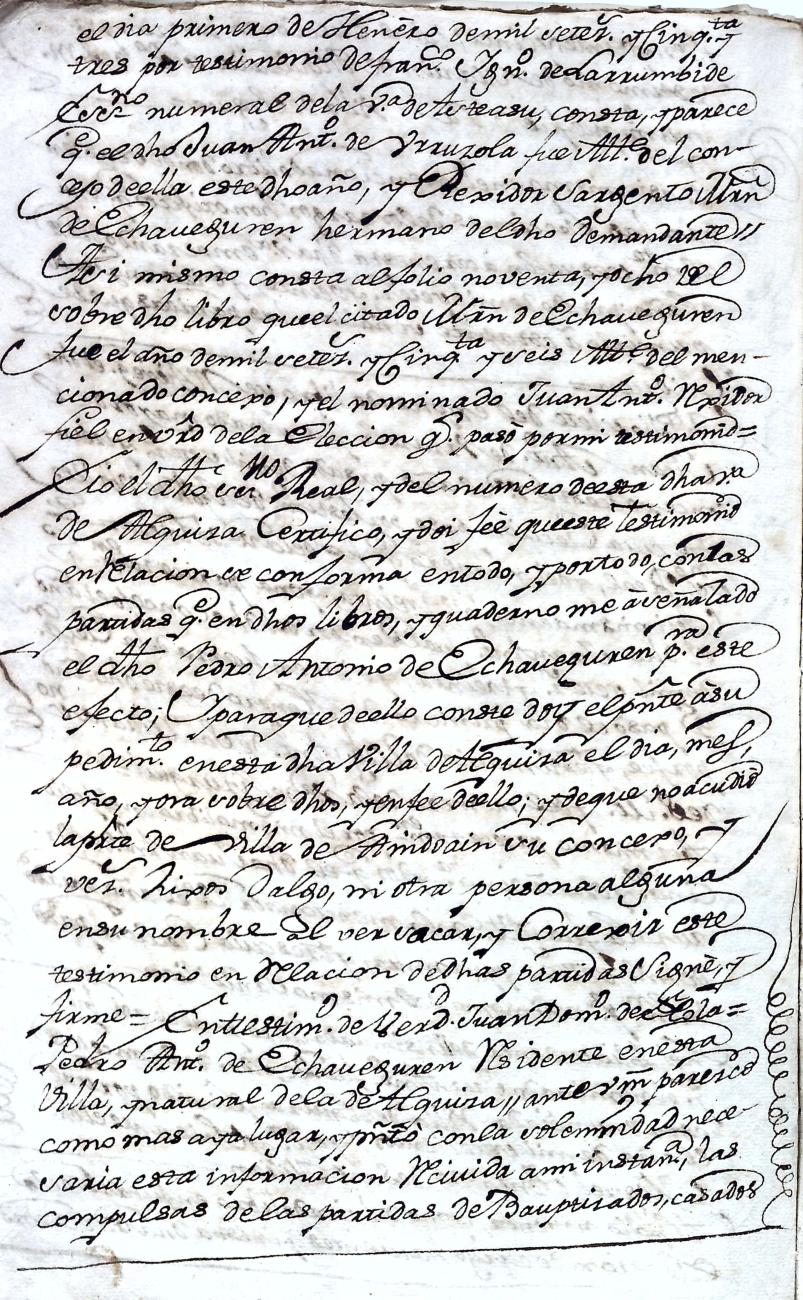 el dia primero de Henero demil setez.s y Cinq.ta y
tres por testimonio de fran.co Ign.o de Larrumbide
Ess.no numeral dela v.a de Asteasu, consta, y parece
q.e el dho Juan Ant.o de Urruzola fue Alle. del con-
cejo de ella este dho año, y Rexidor Sargento Mrn
de Echaveguren hermano del dho Demandante //
Asi mismo consta al folio noventa, y ocho del
sobre dho libro que el citado Mrn de Echaveguren
fue el año demil setez.s y Cinq.ta y seis Alle. del men-
cionado concexo, y el nominado Juan Ant.o Rxidor
fiel en vrd dela Eleccion q.e pasò por mi testimonio =
Lio el dho ess.no Real, y del numero de esta dha v.a
de Alquiza Certifico, y doi feè que este testimonio
en Relacion se conforma en todo, y por todo, con las
partidas q.e en dhos libros, y quaderno me à señalado
el dho Pedro Antonio de Echaveguren p.ra este
efecto; Y para que de ello conste doy el pnte à su
pedim.to en esta dha Villa de Alquiza el dia, mes,
año, y ora sobre dhos, y enfee de ello; y de que no acudiò
la pârte de Villa de Aindoain su concexo, y
vez.s hixos Dalgo, ni otra persona alguna
en su nombre al ver sacar, y Correxir este
testimonio en Relacion de dhas partidas Signè, y
firme = En testim.o de Verd.d Juan Dom.o de =
Pedro Ant.o de Echaveguren Rsidente en esta
Villa, y natural dela de Alquiza // ante Vm parezco
como mas aya lugar, y pntò con la solemnidad nece-
saria esta informacion Rcivida a mi instan.a, las
compulsas de las partidas de Bauptizados, casados